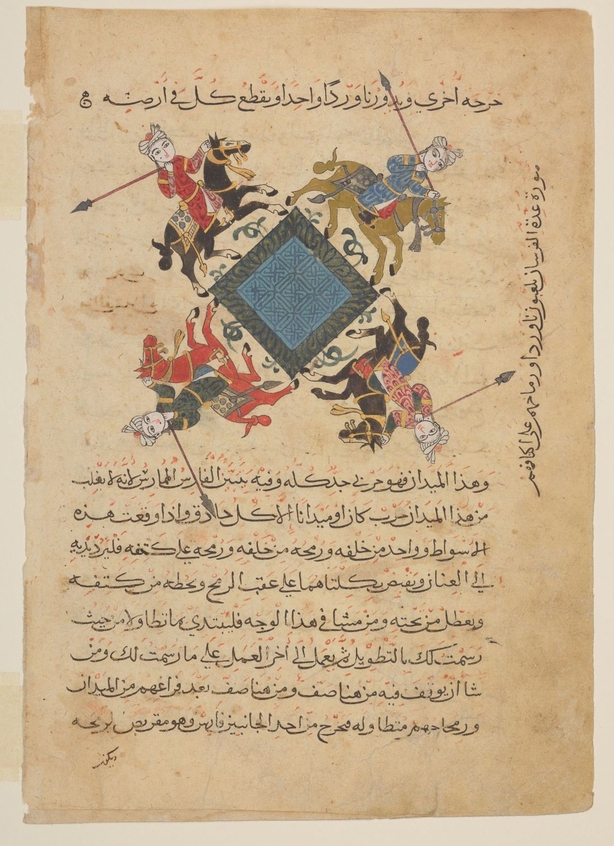 خرجه اخري ويدور ناوردا واحدا ويقطع كل في ارضه
صورة عدة الفرسان يلعبون ناوردا ورماحهم على اكتافهم
وهذا الميدان فهو حربي جد كله وفيه يتبين الفارس الممارس لانه لا
من هذا الميدان حرب كان او ميدانا الا كل حاذق واذا وقعت هذه
الاسواط وواحد من خلفه ورمحه من خلفه ورمحه على كتفه فليرد يديه
الى العنان ويقبض بكلتاهما على عقب الرمح ويحطه من كتفه
ويعطل من تحته ومن مشا في هذا الوجه فليبتدي من حيث
رسمت لك بالتطويل ثم يعمل الى آخر العمل على ما رسمت لك ومن
شا ان يوقف فيه من هنا صف ومن هنا صف بعد فراغهم من الميدان
ورماحهم متطاوله فيخرج من احد الجانبين فارس وهو برمحه